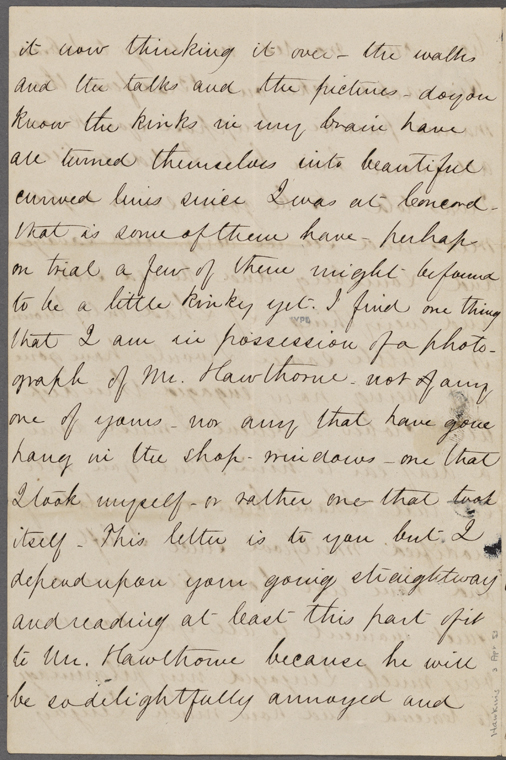 it now thinking it over – the walks
and the talks and the pictures – do you
know the kinks in my brain have
all turned themselves into beautiful
curved lines since I was at Concord –
that is some of them have – perhaps
on trial a few of them might be found
to be a little kinky yet. I find one thing
that I am in possession of a photo-
graph of Mr. Hawthorne – not of any
one of yours – nor any that have gone
hang in the shop-windows – one that
I took myself – or rather one that took
itself – This letter is to you but I
depend upon your going straightway
and reading at least this part of it
to Mr. Hawthorne because he will
be so delightfully annoyed and
Hawkins 3 Apr